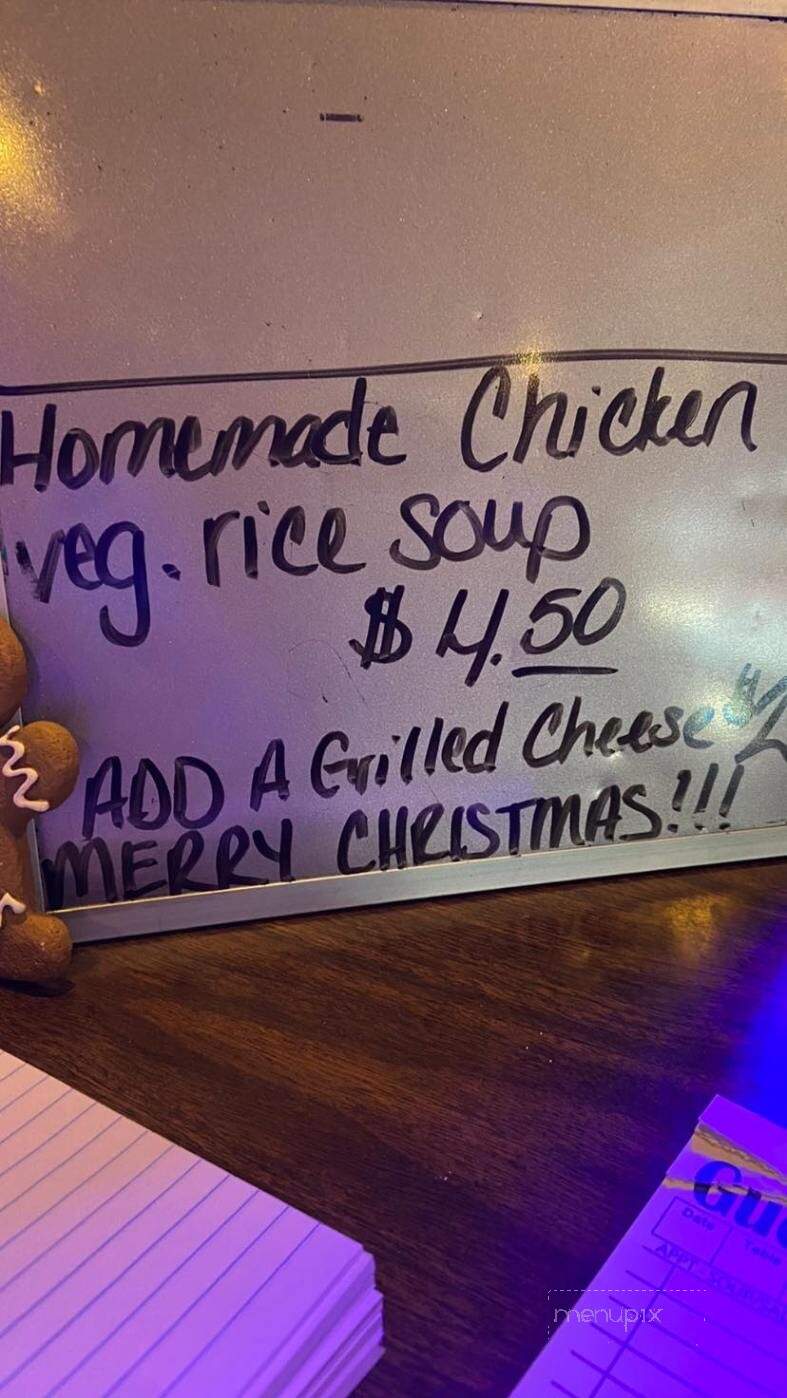 Homemade Chicken
veg. rice soup
$4.50
ADD A Grilled Cheese $2
MERRY CHRISTMAS!!!
Date
Table
menupix